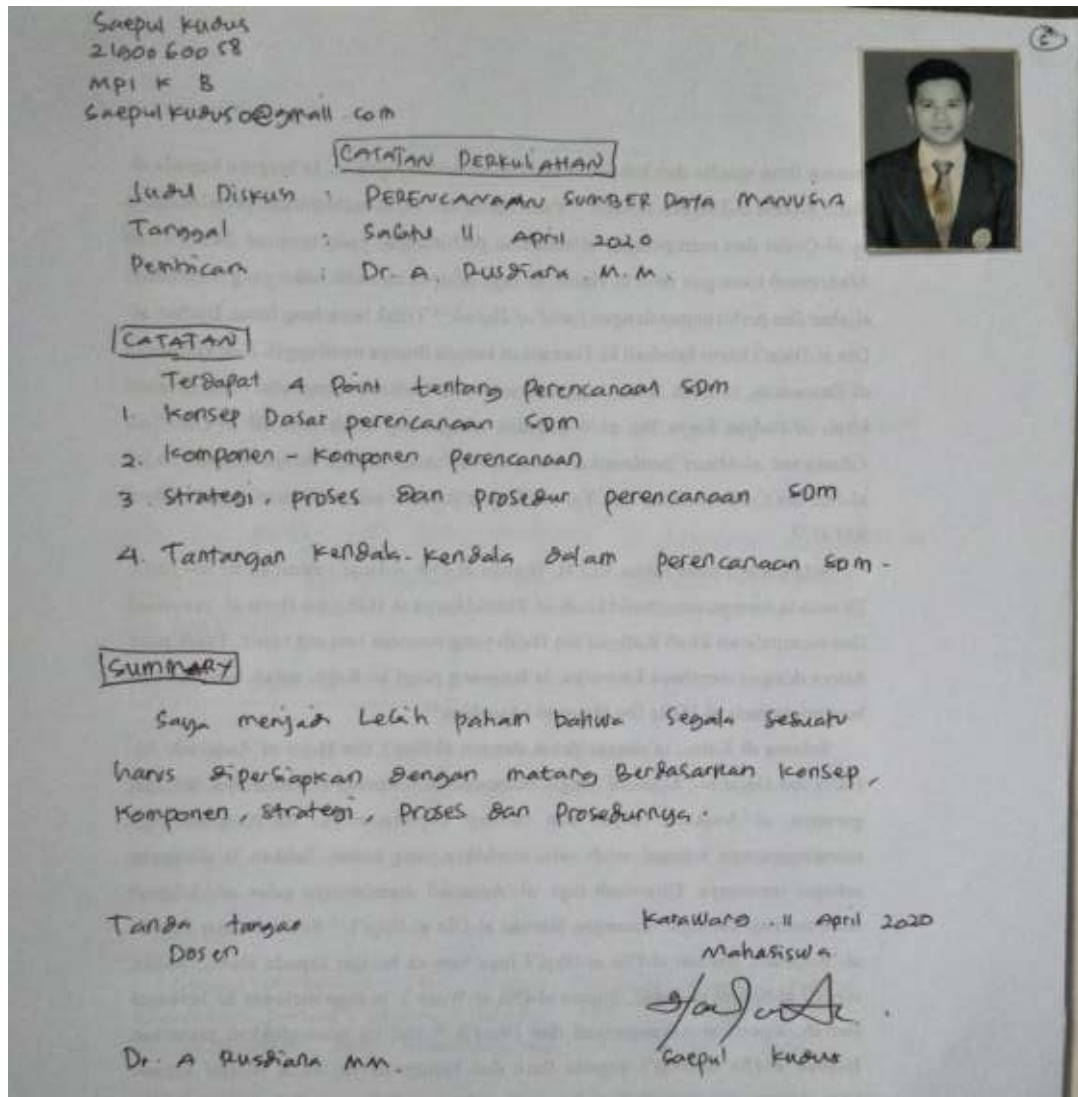 Saepul Kudus
2190060058
MPI K B
Saepulkudus0@gmail.com
CATATAN PERKULIAHAN
Judul Diskusi : PERENCANAAN SUMBER DAYA MANUSIA
Tanggal : Sabtu 11, April 2020
Pembicara : Dr. A. Rusdiana. M.M.
CATATAN
Terdapat 4 Point tentang Perencanaan SDM
1. Konsep Dasar perencanaan SDM
2. Komponen - Komponen Perencanaan
3. Strategi, proses dan prosedur perencanaan SDM
4. Tantangan Kendala-Kendala dalam perencanaan SDM -
SUMMARY
Saya menjadi Lebih paham bahwa Segala Sesuatu
harus dipersiapkan dengan matang Berdasarkan Konsep,
Komponen, Strategi, Proses dan Prosedurnya.
Tanda tangan
Dosen
Karawang, 11 April 2020
Mahasiswa
Dr. A Rusdiana MM.
Saepul Kudus